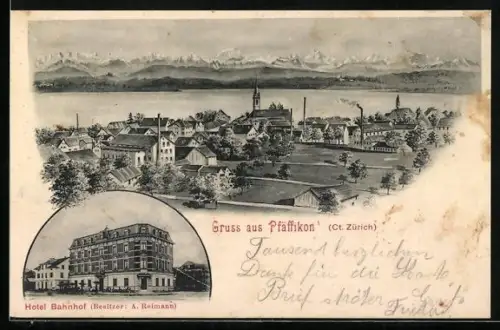 Gruss aus Pfäffikon (Ct. Zürich)
Tausend herzlichen
Dank für die Karte
Brief später
Hotel Bahnhof (Besitzer: A. Reimann)